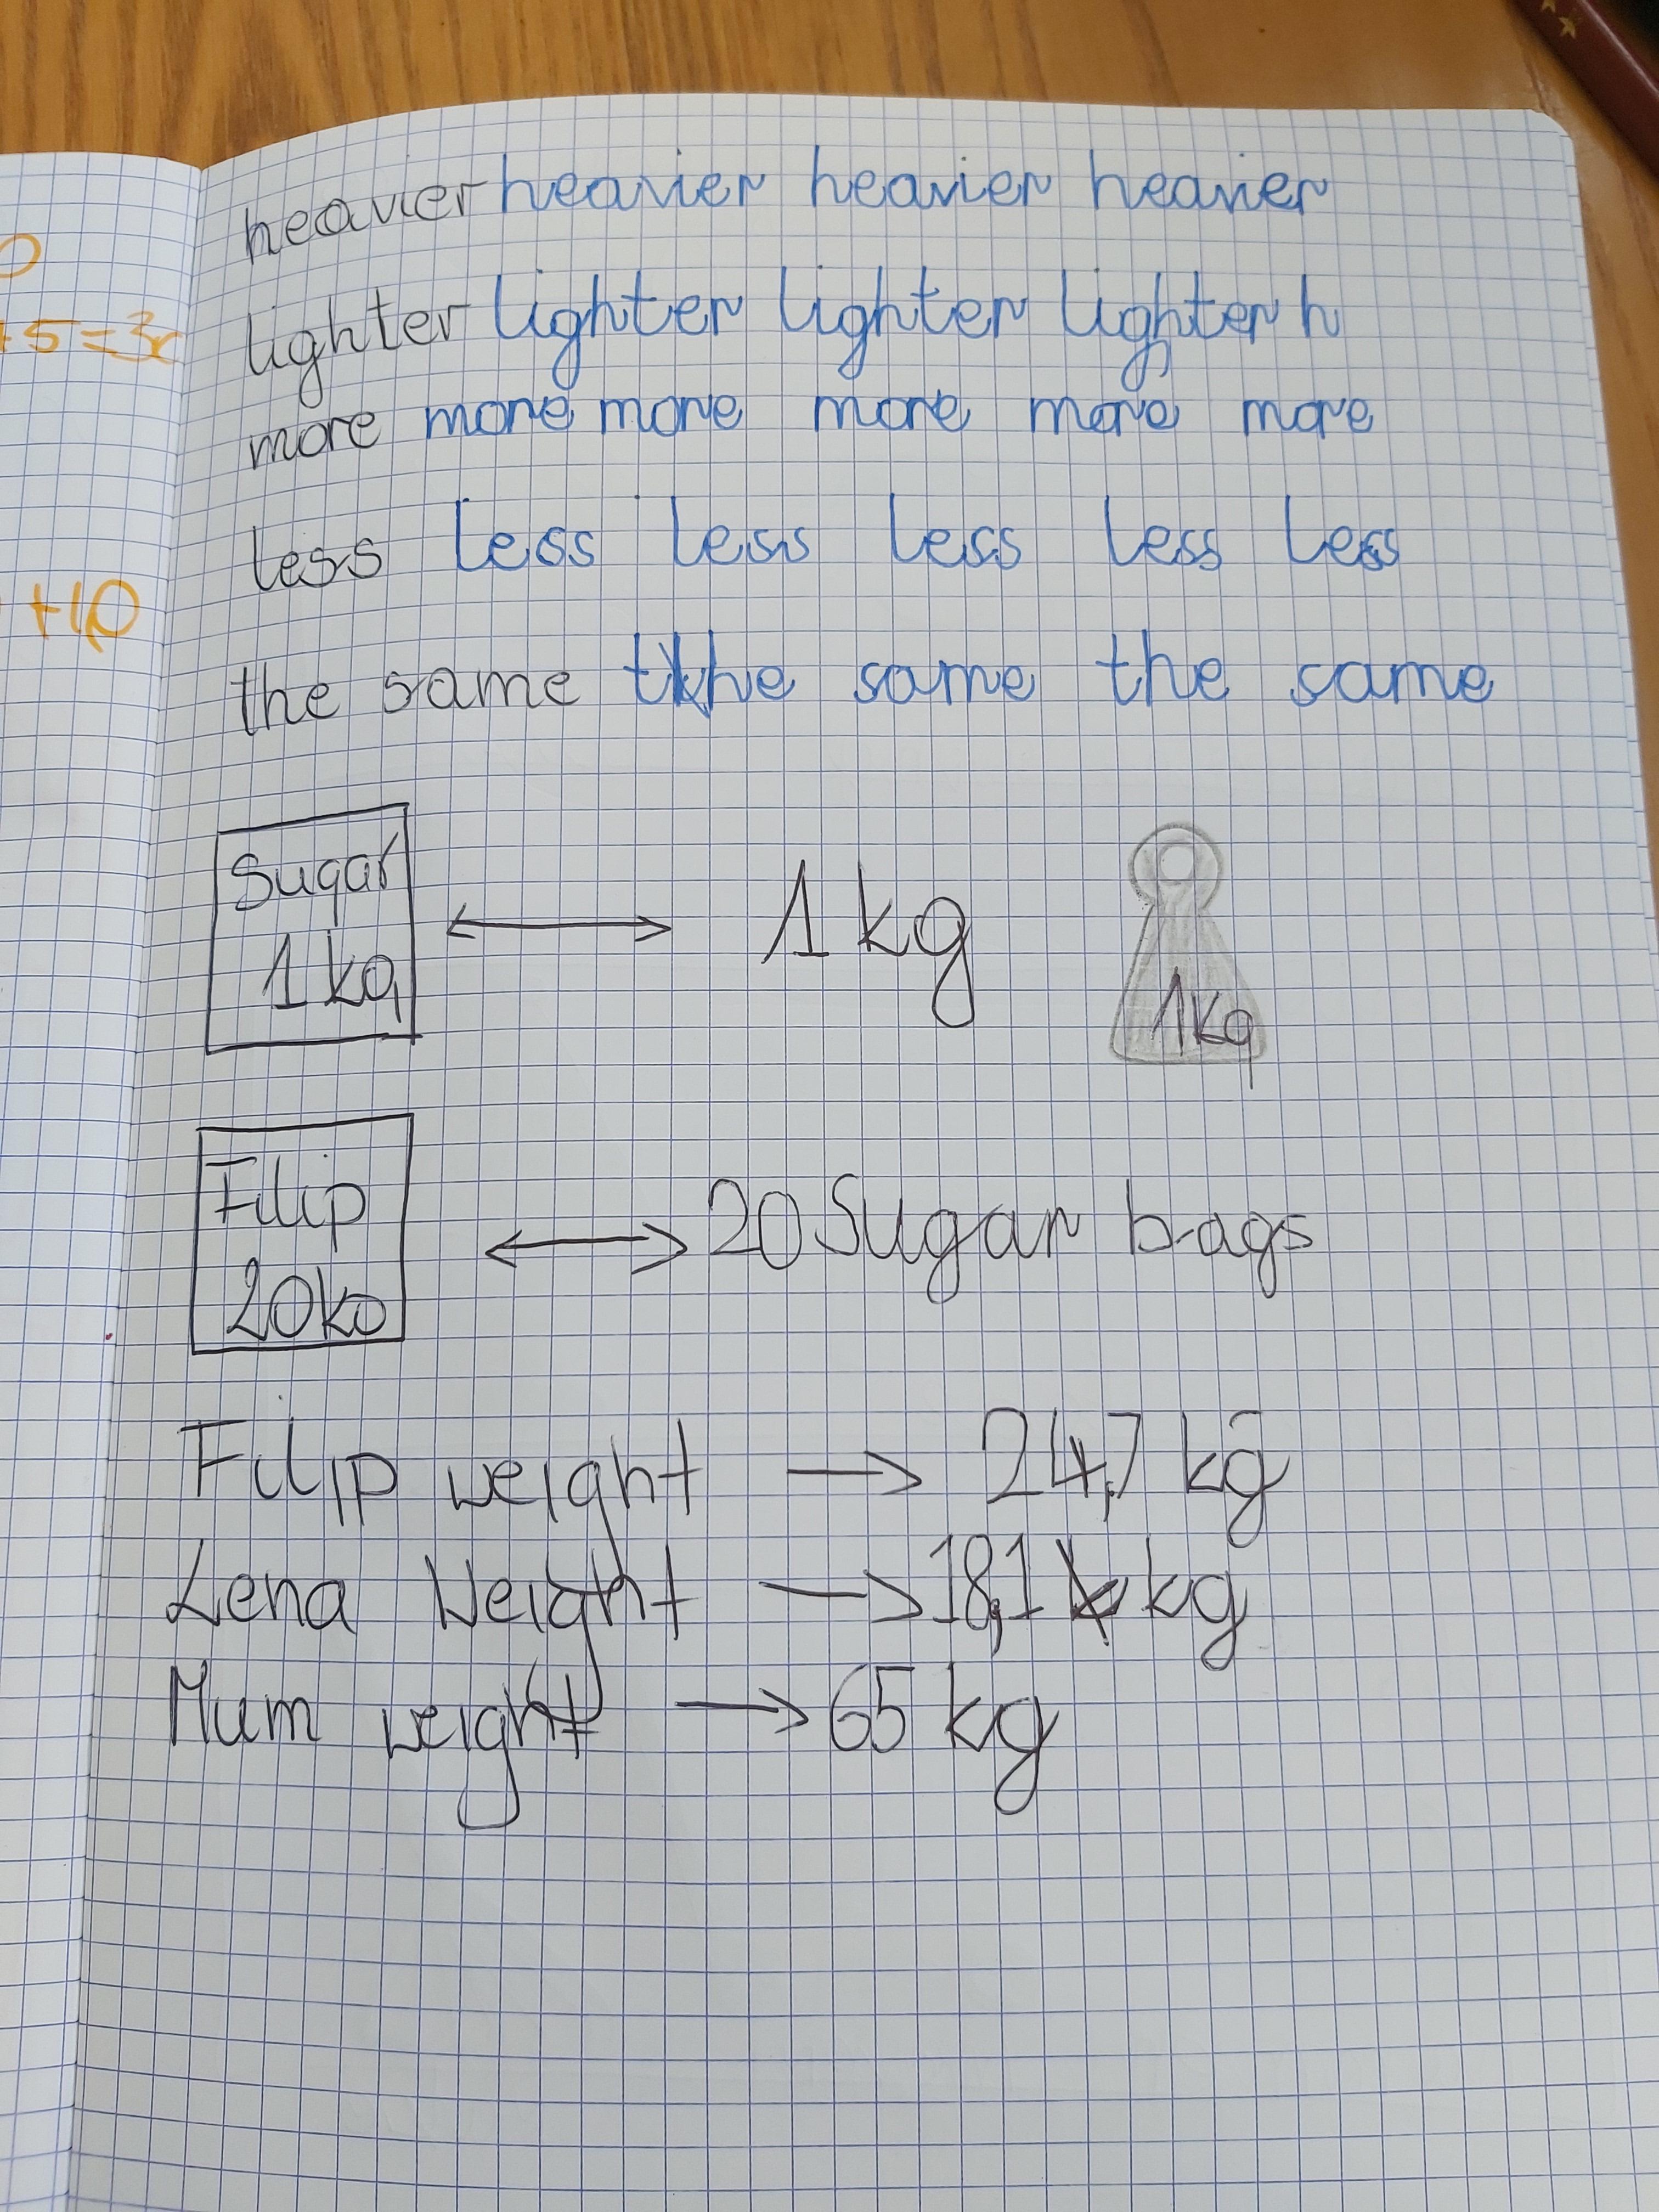 heavier heavier heavier heavier
lighter lighter lighter lighter h
more more more more more more
less less less less less less
the same the same the same
Sugar
1 kg
1 kg
1 kg
Filip
20 kg
20 Sugar bags
Filip weight → 24,7 kg
Lena Weight → 18,1 kg
Mum weight → 65 kg
+5=30
+10